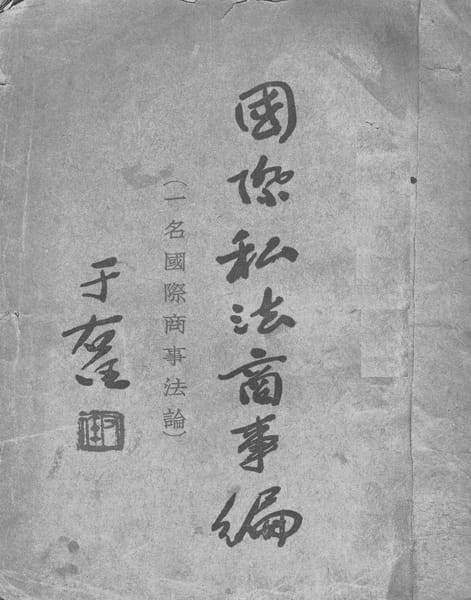 國際私法商事編
（一名國際商事法論）
于右任